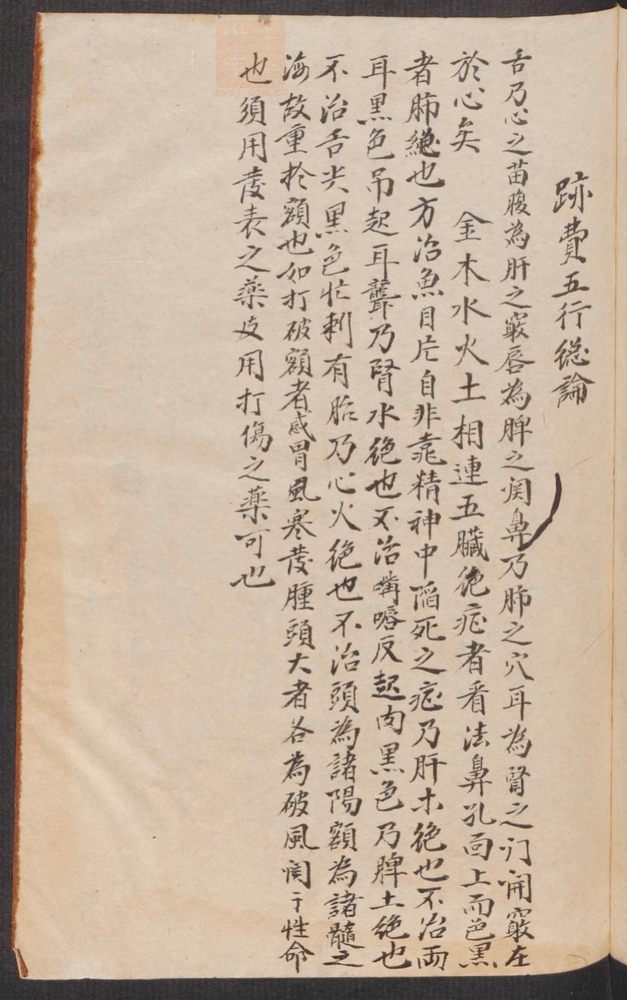 跡費五行総論
舌乃心之苗腹為肝之竅唇為脾之関鼻乃肺之穴耳為腎之门開竅在
於心矣　金木水火土相連五臟絶症者看法鼻孔向上而色黑
者肺絶也方治魚目定自非靠精神中陷死之症乃肝木絶也不治両
耳黑色吊起耳聾乃腎水絶也不治嘴唇反起肉黑色乃脾土絶也
不治舌尖黑色忙刺有胎乃心火絶也不治頭為諸陽額為諸髓之
海故重於額也如打破額者感冒風寒發腫頭大者名為破風関于性命
也須用發表之藥攻用打傷之藥可也